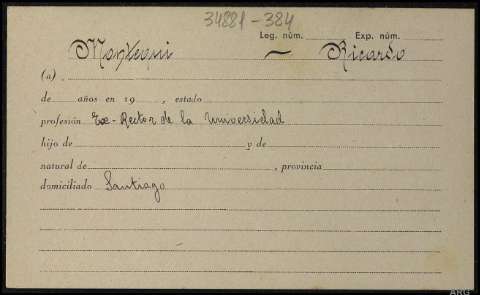 34881-384
Leg. núm. Exp. núm.
Montequi Ricardo
(a)
de años en 19 , estado
profesión Ex-Rector de la Universidad
hijo de y de
natural de , provincia
domiciliado Santiago
ARG